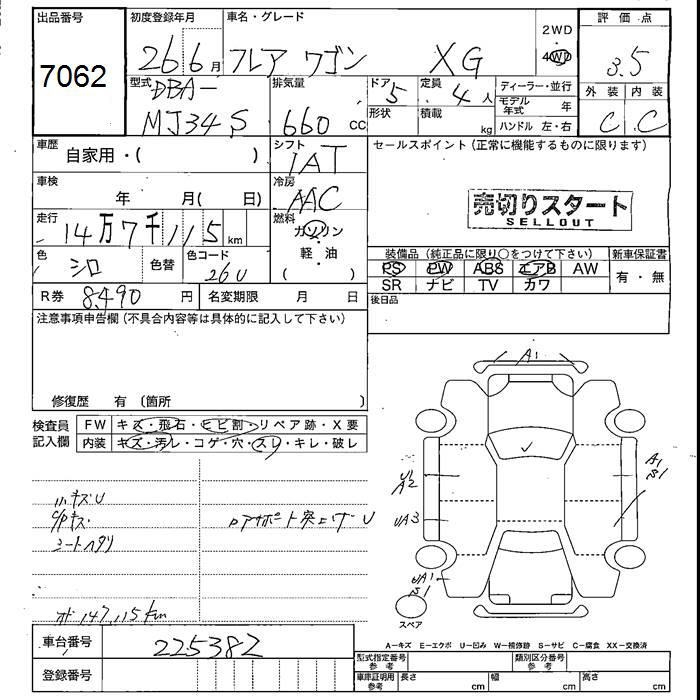 出品番号
7062
初度登録年月
26 6 月
車名・グレード
フレア ワゴン XG
2WD
4WD
評価点
3.5
型式
DBA-
MJ34S
排気量
660 cc
ドア
5
形状
定員
4人
積載
kg
ディーラー・並行
モデル年式 年
ハンドル 左・右
外装 内装
C C
車歴
自家用・( )
シフト
IAT
セールスポイント (正常に機能するものに限ります)
車検
年 月( 日)
冷房
AAC
売切りスタート
SELLOUT
走行
14万7千115 km
燃料
ガソリン
・
軽・油
色
シロ
色替
色コード
26U
装備品 (純正品に限り○をつけて下さい)
新車保証書
PS PW ABS エアB AW
SR ナビ TV カワ
有・無
R券 8490 円
名変期限 月 日
後日品
注意事項申告欄 (不具合内容等は具体的に記入して下さい)
修復歴 有 (箇所 )
検査員
記入欄
FW キズ・飛石・ヒビ割・リペア跡・X要
内装 キズ・汚レ・コゲ・穴・スレ・キレ・破レ
小キズU
シートヘタリ
147,115km
A1
U1
A2
UA3
UA1
S1
A1
S1
スペア
車台番号 225382
登録番号
A−キズ E−エクボ U−凹み W−補修跡 S−サビ C−腐食 XX−交換済
型式指定番号
参考
類別区分番号
参考
車庫証明用
参考
長さ cm
幅 cm
高さ cm